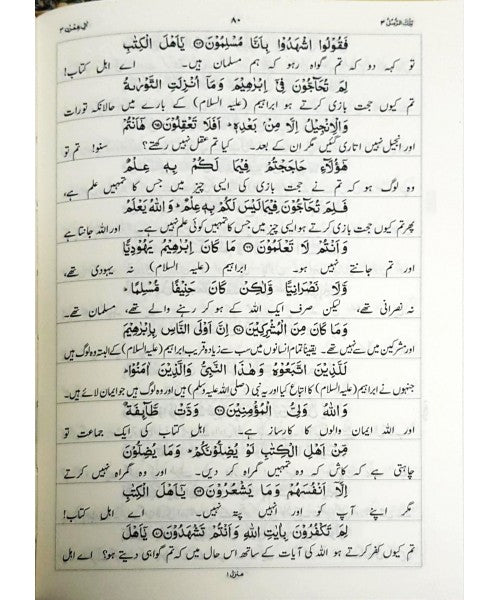 تلك الرسل ٣ ٨٠ اٰل عمرٰن ٣
فَقُوْلُوا اشْهَدُوْا بِاَنَّا مُسْلِمُوْنَ ﴿٦٤﴾ يٰۤاَهْلَ الْكِتٰبِ
تو کہہ دو کہ تم گواہ رہو کہ ہم مسلمان ہیں۔ اے اہل کتاب!
لِمَ تُحَآجُّوْنَ فِيْۤ اِبْرٰهِيْمَ وَمَاۤ اُنْزِلَتِ التَّوْرٰىةُ
تم کیوں حجت بازی کرتے ہو ابراہیم (علیہ السلام) کے بارے میں حالانکہ تورات
وَالْاِنْجِيْلُ اِلَّا مِنْۢ بَعْدِهٖ ؕ اَفَلَا تَعْقِلُوْنَ ﴿٦٥﴾ هٰۤاَنْتُمْ
اور انجیل نہیں اتاری گئیں مگر ان کے بعد۔ کیا تم عقل نہیں رکھتے؟ سنو! تم تو
هٰۤؤُلَآءِ حَاجَجْتُمْ فِيْمَا لَكُمْ بِهٖ عِلْمٌ
وہ لوگ ہو کہ تم نے حجت بازی کی ایسی چیز میں جس کا تمہیں علم ہے،
فَلِمَ تُحَآجُّوْنَ فِيْمَا لَيْسَ لَكُمْ بِهٖ عِلْمٌ ؕ وَاللّٰهُ يَعْلَمُ
پھر تم کیوں حجت بازی کرتے ہو ایسی چیز میں جس کا تمہیں کوئی علم نہیں ہے۔ اور اللہ جانتا ہے
وَاَنْتُمْ لَا تَعْلَمُوْنَ ﴿٦٦﴾ مَا كَانَ اِبْرٰهِيْمُ يَهُوْدِيًّا
اور تم جانتے نہیں ہو۔ ابراہیم (علیہ السلام) نہ یہودی تھے،
وَّلَا نَصْرَانِيًّا وَّلٰكِنْ كَانَ حَنِيْفًا مُّسْلِمًا ؕ
نہ نصرانی تھے، لیکن صرف ایک اللہ کے ہو کر رہنے والے تھے، مسلمان تھے۔
وَمَا كَانَ مِنَ الْمُشْرِكِيْنَ ﴿٦٧﴾ اِنَّ اَوْلَى النَّاسِ بِاِبْرٰهِيْمَ
اور مشرکین میں سے نہیں تھے۔ یقیناً تمام انسانوں میں سب سے زیادہ قریب ابراہیم (علیہ السلام) کے البتہ وہ لوگ ہیں
لَلَّذِيْنَ اتَّبَعُوْهُ وَهٰذَا النَّبِيُّ وَالَّذِيْنَ اٰمَنُوْا ؕ
جنہوں نے ابراہیم (علیہ السلام) کا اتباع کیا اور یہ نبی (صلی اللہ علیہ وسلم) ہیں اور وہ لوگ ہیں جو ایمان لائے ہیں۔
وَاللّٰهُ وَلِيُّ الْمُؤْمِنِيْنَ ﴿٦٨﴾ وَدَّتْ طَّآئِفَةٌ
اور اللہ ایمان والوں کا کارساز ہے۔ اہل کتاب کی ایک جماعت تو
مِّنْ اَهْلِ الْكِتٰبِ لَوْ يُضِلُّوْنَكُمْ ؕ وَمَا يُضِلُّوْنَ
چاہتی ہے کہ کاش کہ وہ تمہیں گمراہ کر دیں۔ اور وہ گمراہ نہیں کرتے
اِلَّاۤ اَنْفُسَهُمْ وَمَا يَشْعُرُوْنَ ﴿٦٩﴾ يٰۤاَهْلَ الْكِتٰبِ
مگر اپنے آپ کو اور انہیں پتہ نہیں۔ اے اہل کتاب!
لِمَ تَكْفُرُوْنَ بِاٰيٰتِ اللّٰهِ وَاَنْتُمْ تَشْهَدُوْنَ ﴿٧٠﴾ يٰۤاَهْلَ
تم کیوں کفر کرتے ہو اللہ کی آیات کے ساتھ اس حال میں کہ تم گواہی دیتے ہو؟ اے اہل
منزل ١